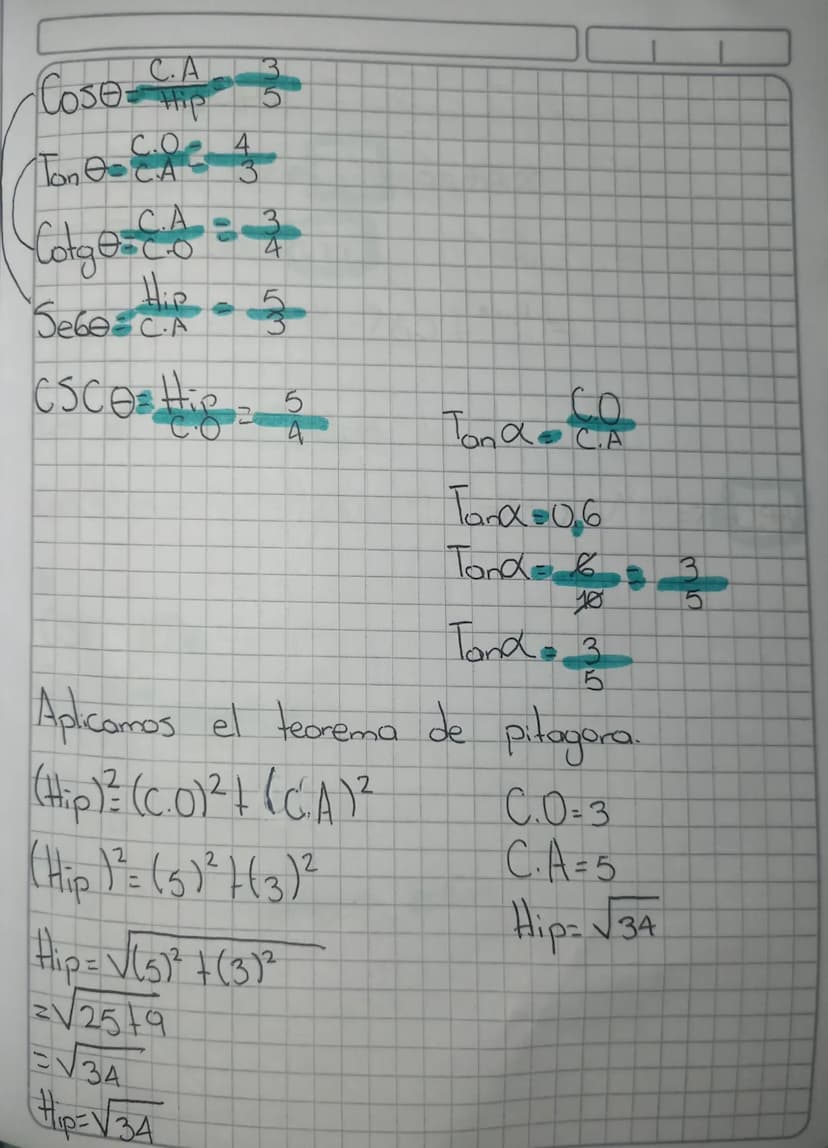 Cosθ = C.A/Hip = 3/5
Tanθ = C.O/C.A = 4/3
Cotgθ = C.A/C.O = 3/4
Secθ = Hip/C.A = 5/3
CSCθ = Hip/C.O = 5/4
Tanα = C.O/C.A
Tanα = 0,6
Tanα = 6/10 = 3/5
Tanα = 3/5
Aplicamos el teorema de pitagora.
(Hip)² = (C.O)² + (C.A)²
(Hip)² = (5)² + (3)²
Hip = √(5)² + (3)²
= √25+9
= √34
Hip = √34
C.O = 3
C.A = 5
Hip = √34